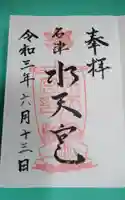 奉拝
名津
水天宮
令和三年六月十三日